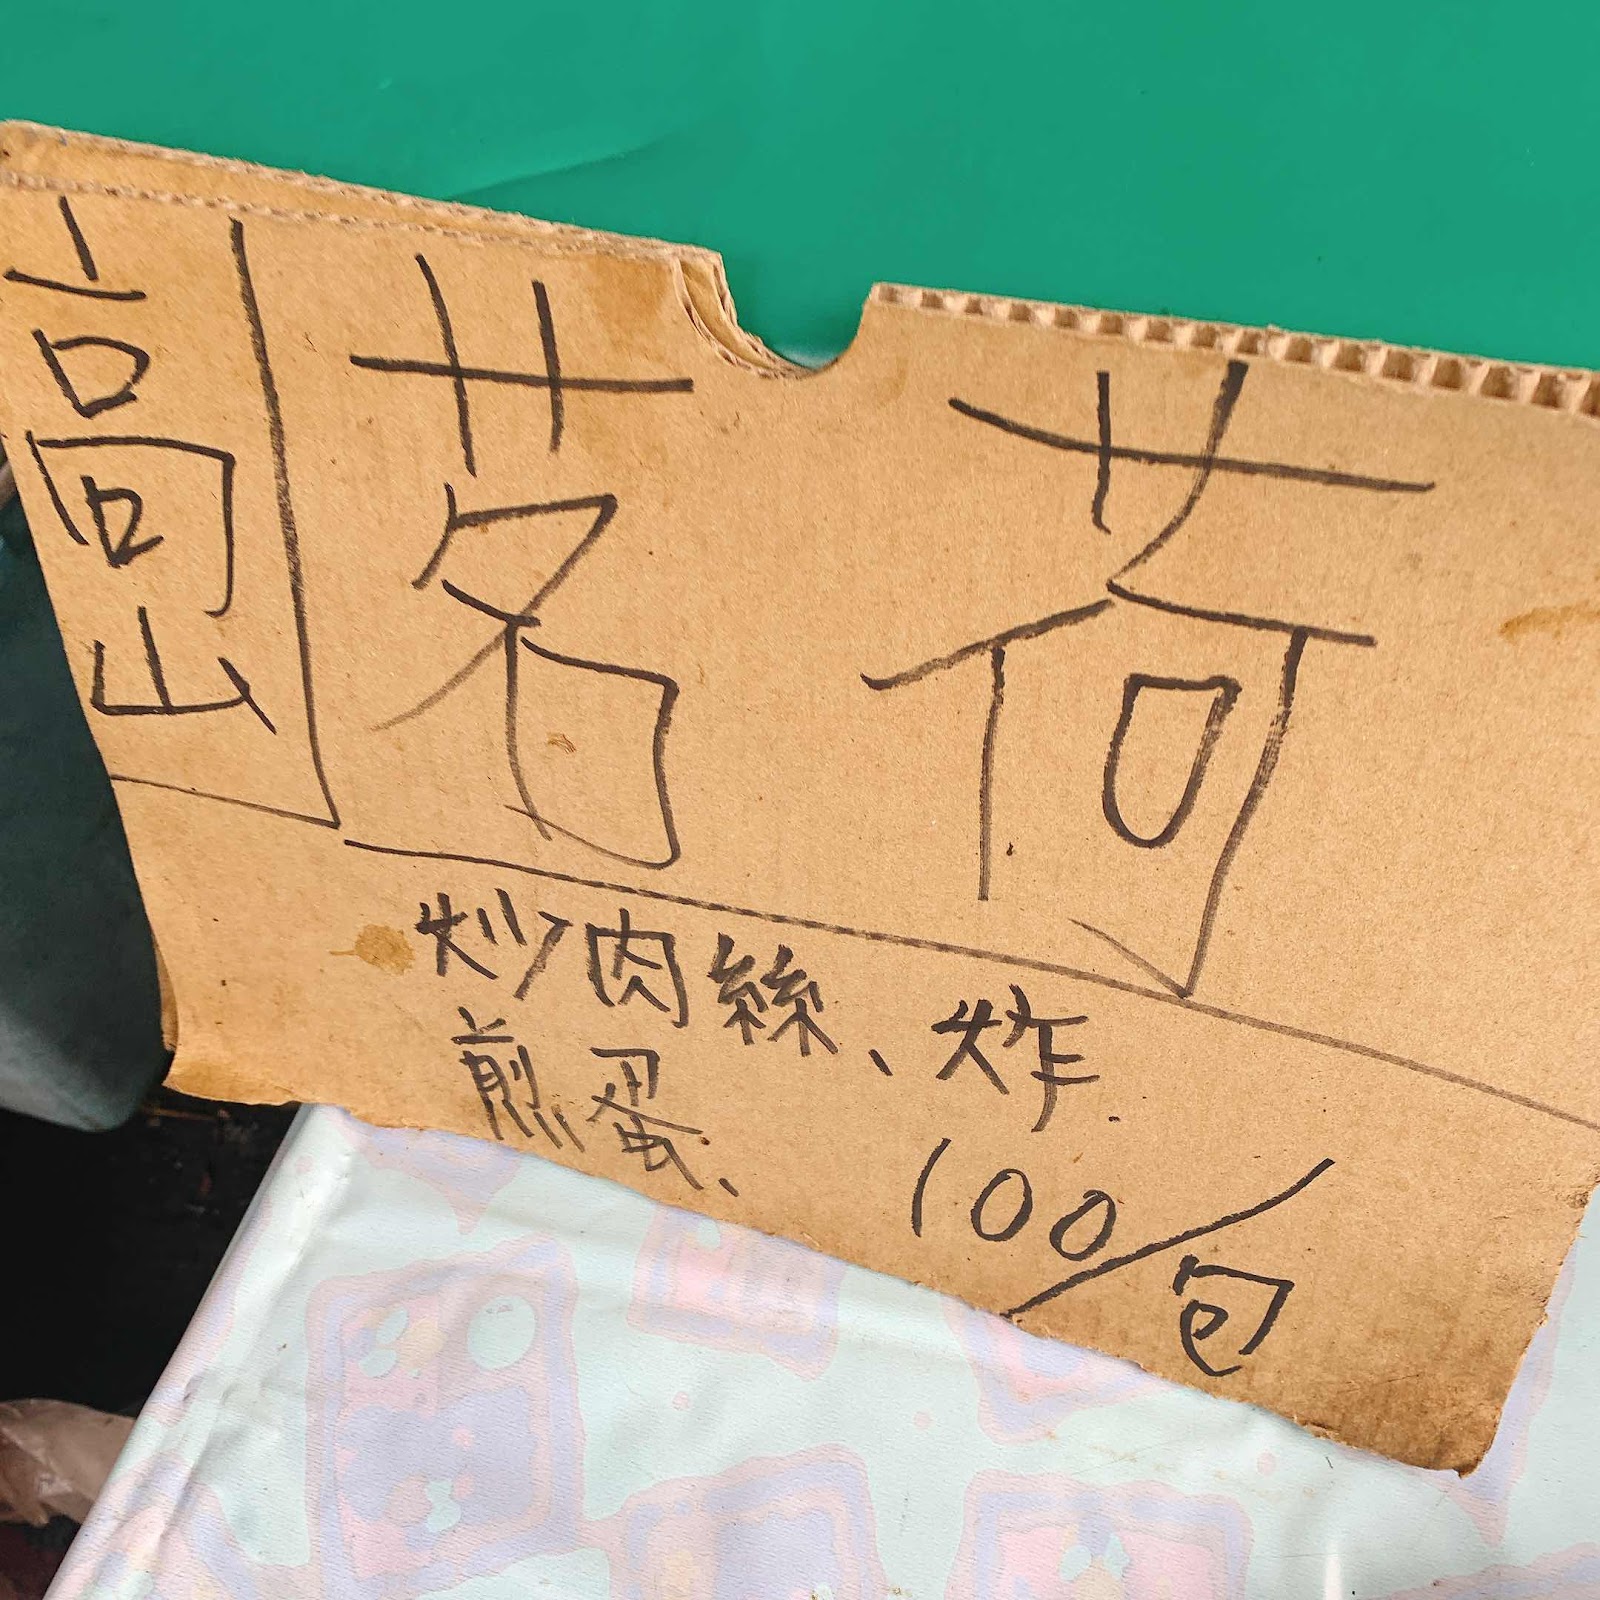 高山
茗荷
炒肉絲、炸
煎蛋、
100/包